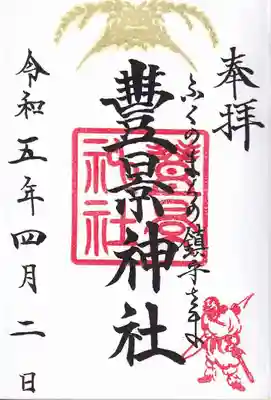 奉拝
ふくのまちの鎮守さま
豊景神社
令和五年四月二日